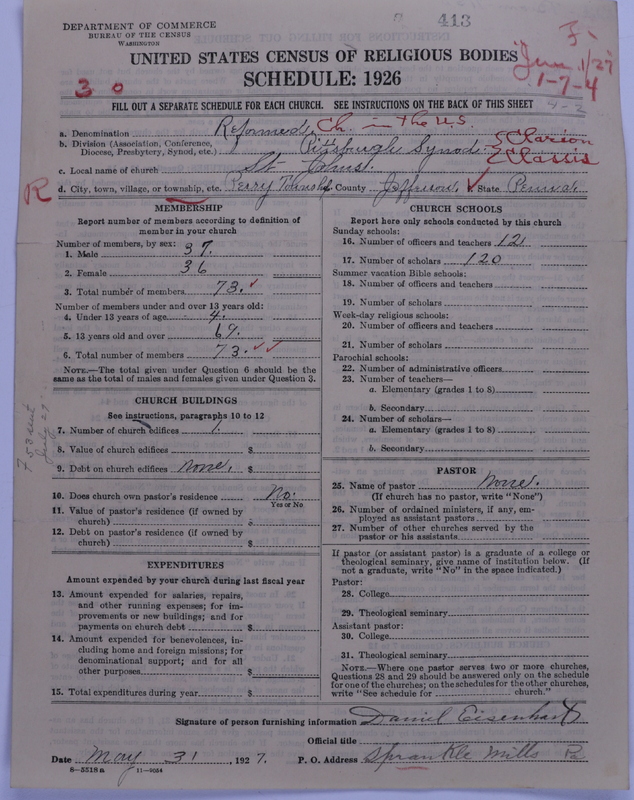 413
DEPARTMENT OF COMMERCE
BUREAU OF THE CENSUS
WASHINGTON
UNITED STATES CENSUS OF RELIGIOUS BODIES
SCHEDULE: 1926
1-7-4
3 0
4-2
FILL OUT A SEPARATE SCHEDULE FOR EACH CHURCH. SEE INSTRUCTIONS ON THE BACK OF THIS SHEET
a. Denomination Reformed Ch. in the U.S.
b. Division (Association, Conference, Diocese, Presbytery, Synod, etc.) Pittsburgh Synod. Clarion Classis
c. Local name of church St
R d. City, town, village, or township, etc. Perry Township County Jefferson, State Penna.
MEMBERSHIP
Report number of members according to definition of
member in your church
Number of members, by sex:
1. Male 37.
2. Female 36
3. Total number of members 73.
Number of members under and over 13 years old:
4. Under 13 years of age 4.
5. 13 years old and over 69.
6. Total number of members 73.
NOTE.—The total given under Question 6 should be
same as the total of males and females given under Question 3.
CHURCH BUILDINGS
See instructions, paragraphs 10 to 12
7. Number of church edifices 1.
8. Value of church edifices $
9. Debt on church edifices none.
10. Does church own pastor's residence No.
Yes or No
11. Value of pastor's residence (if owned by
church) $
12. Debt on pastor's residence (if owned by
church) $
EXPENDITURES
Amount expended by your church during last fiscal year
13. Amount expended for salaries, repairs,
and other running expenses; for im-
provements or new buildings; and for
payments on church debt $
14. Amount expended for benevolences, in-
cluding home and foreign missions; for
denominational support; and for all
other purposes $
15. Total expenditures during year $
CHURCH SCHOOLS
Report here only schools conducted by this church
Sunday schools:
16. Number of officers and teachers 12
17. Number of scholars 120
Summer vacation Bible schools:
18. Number of officers and teachers
19. Number of scholars
Week-day religious schools:
20. Number of officers and teachers
21. Number of scholars
Parochial schools:
22. Number of administrative officers
23. Number of teachers—
a. Elementary (grades 1 to 8)
b. Secondary
24. Number of scholars—
a. Elementary (grades 1 to 8)
b. Secondary
PASTOR
25. Name of pastor None.
(If church has no pastor, write "None")
26. Number of ordained ministers, if any, em-
ployed as assistant pastors
27. Number of other churches served by the
pastor or his assistants
If pastor (or assistant pastor) is a graduate of a college or
theological seminary, give name of institution below. (If
not a graduate, write "No" in the space indicated.)
Pastor:
28. College
29. Theological seminary
Assistant pastor:
30. College
31. Theological seminary
NOTE.—Where one pastor serves two or more churches,
Questions 28 and 29 should be answered only on the schedule
for one of the churches; on the schedules for the other churches,
write "See schedule for church."
Signature of person furnishing information Daniel Eisenhart
Official title
Date May 31, 1927. P. O. Address Sprankle Mills Pa
8-5518 a 11-9054